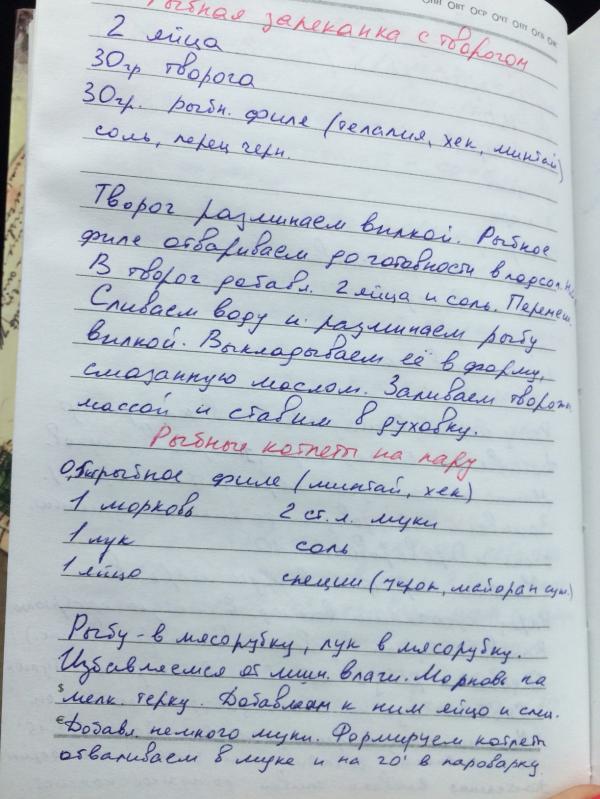 ОКТ ОВТ ОСР ОЧТ ОПТ ОСБ ОВС
Рыбная запеканка с творогом
2 яйца
30гр творога
30гр. рыбн. филе (телапия, хек, минтай)
соль, перец черн.
Творог разминаем вилкой. Рыбное
филе отвариваем до готовности в подсол.
В творог добавл. 2 яйца и соль. Перемеш.
Сливаем воду и разминаем рыбу
вилкой. Выкладываем её в форму,
смазанную маслом. Заливаем творожн
массой и ставим в духовку.
Рыбные котлеты на пару
0,5кг рыбное филе (минтай, хек)
1 морковь 2 ст. л. муки
1 лук соль
1 яйцо специи (укроп, майоран суш.)
Рыбу - в мясорубку, лук в мясорубку.
Избавляемся от лишн. влаги. Морковь на
$ мелк. терку. Добавляем к ним яйцо и спец.
€ Добавл. немного муки. Формируем котлет
отваливаем в муке и на 20' в пароварку